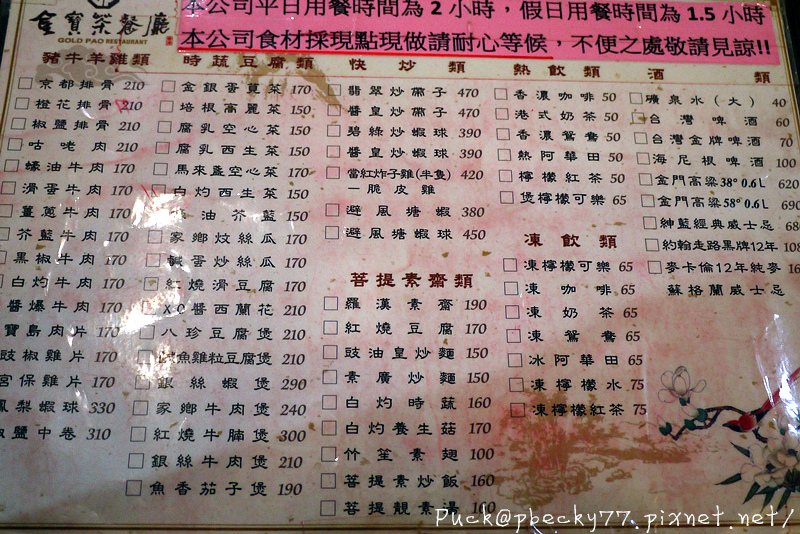 金寶茶餐廳
GOLD PAO RESTAURANT
本公司平日用餐時間為 2 小時，假日用餐時間為 1.5 小時
本公司食材採現點現做請耐心等候，不便之處敬請見諒!!
豬牛羊雞類
京都排骨 210
橙花排骨 210
椒鹽排骨 210
咕咾肉 210
蠔油牛肉 170
滑蛋牛肉 170
薑蔥牛肉 170
芥藍牛肉 170
黑椒牛肉 170
白灼牛肉 170
醬爆牛肉 170
寶島肉片 170
豉椒雞片 170
宮保雞片 170
鳳梨蝦球 330
椒鹽中卷 310
時蔬豆腐類
金銀蛋莧菜 170
培根高麗菜 150
腐乳空心菜 150
腐乳西生菜 150
馬來盞空心菜 170
白灼西生菜 150
油芥藍 150
家鄉炆絲瓜 170
鹹蛋炒絲瓜 170
紅燒滑豆腐 170
XO醬西蘭花 210
八珍豆腐煲 210
鹹魚雞粒豆腐煲 210
銀絲蝦煲 290
家鄉牛肉煲 240
紅燒牛腩煲 300
銀絲牛肉煲 210
魚香茄子煲 190
快炒類
翡翠炒帶子 470
醬皇炒帶子 470
碧綠炒蝦球 390
醬皇炒蝦球 390
當紅炸子雞(半隻) 420
－脆皮雞
避風塘蝦 380
避風塘蝦球 450
菩提素齋類
羅漢素齋 190
紅燒豆腐 170
豉油皇炒麵 150
素廣炒麵 150
白灼時蔬 160
白灼養生菇 170
竹笙素翅 100
菩提素炒飯 160
菩提靚素湯 100
熱飲類
香濃咖啡 50
港式奶茶 50
香濃鴛鴦 50
熱阿華田 50
檸檬紅茶 50
煲檸檬可樂 65
凍飲類
凍檸檬可樂 65
凍咖啡 65
凍奶茶 65
凍鴛鴦 65
冰阿華田 65
凍檸檬水 75
凍檸檬紅茶 75
酒類
礦泉水(大) 40
台灣啤酒 60
台灣金牌啤酒 70
海尼根啤酒 100
金門高粱38° 0.6L 620
金門高粱58° 0.6L 690
紳藍經典威士忌 680
約翰走路黑牌12年 108
麥卡倫12年純麥 16
蘇格蘭威士忌
Puck@pbecky77.pixnet.net/